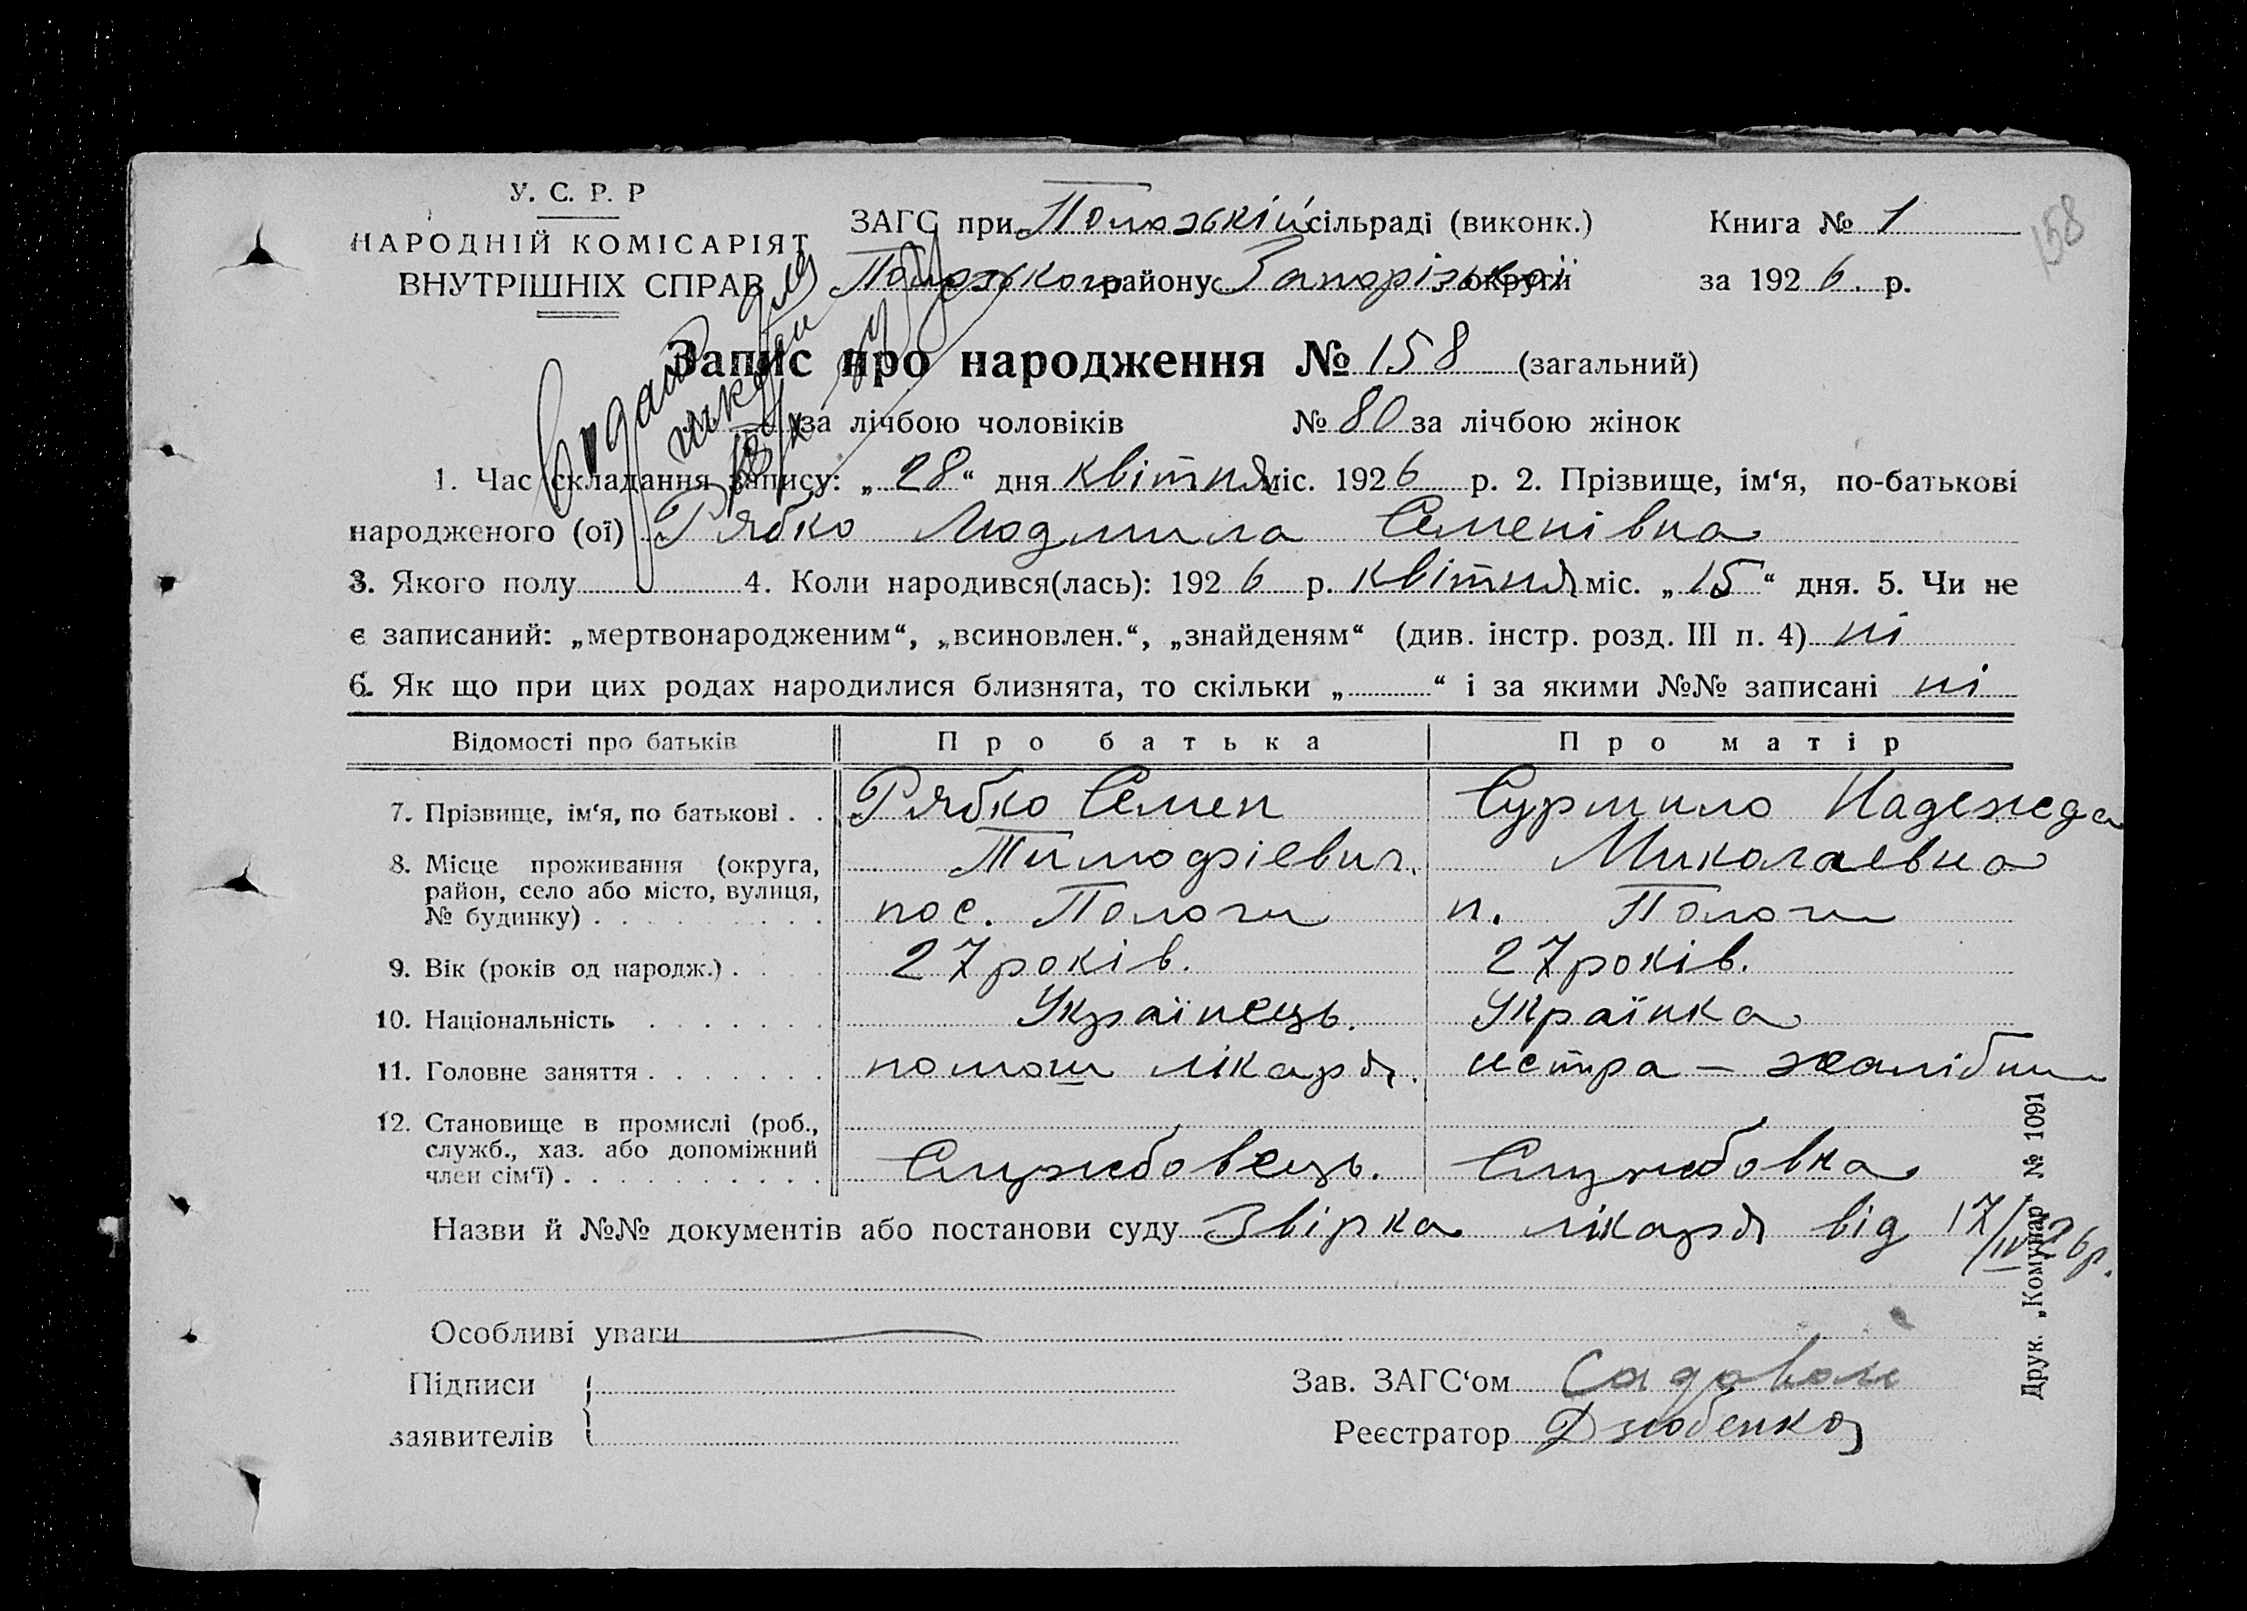 У. С. Р. Р
НАРОДНІЙ КОМІСАРІЯТ
ВНУТРІШНІХ СПРАВ
ЗАГС при Пологзькій сільраді (виконк.)
Книга № 1
158
Пологзького району Запорізької округи
за 1926 р.
Запис про народження № 158 (загальний)
за лічбою чоловіків № 80 за лічбою жінок
1. Час складання запису: „28“ дня квітня міс. 1926 р. 2. Прізвище, ім‘я, по-батькові
народженого (ої) Рябко Людмила Семенівна
3. Якого полу 4. Коли народився(лась): 1926 р. квітня міс. „15“ дня. 5. Чи не
є записаний: „мертвонародженим“, „всиновлен.“, „знайденям“ (див. інстр. розд. III п. 4) ні
6. Як що при цих родах народилися близнята, то скільки „ “ і за якими №№ записані ні
Відомості про батьків Про батька Про матір
7. Прізвище, ім‘я, по батькові . . Рябко Семен Сурмило Надежда
Тимофієвич. Миколаевна
8. Місце проживання (округа,
район, село або місто, вулиця,
№ будинку) . . . . . . . . . пос. Пологи п. Пологи
9. Вік (років од народж.) . . . . 27 років. 27 років.
10. Національність . . . . . . . Українець. Українка
11. Головне заняття . . . . . . . помош лікаря. сестра - жалібни
12. Становище в промислі (роб.,
служб., хаз. або допоміжний
член сім‘ї) . . . . . . . . . . Службовець. Службовка
Назви й №№ документів або постанови суду Звірка лікаря від 17/IV 26р.
Особливі уваги
Підписи
заявителів
Зав. ЗАГС‘ом Садовой
Реєстратор Дзюбенко
Друк. „Комунар“ № 1091